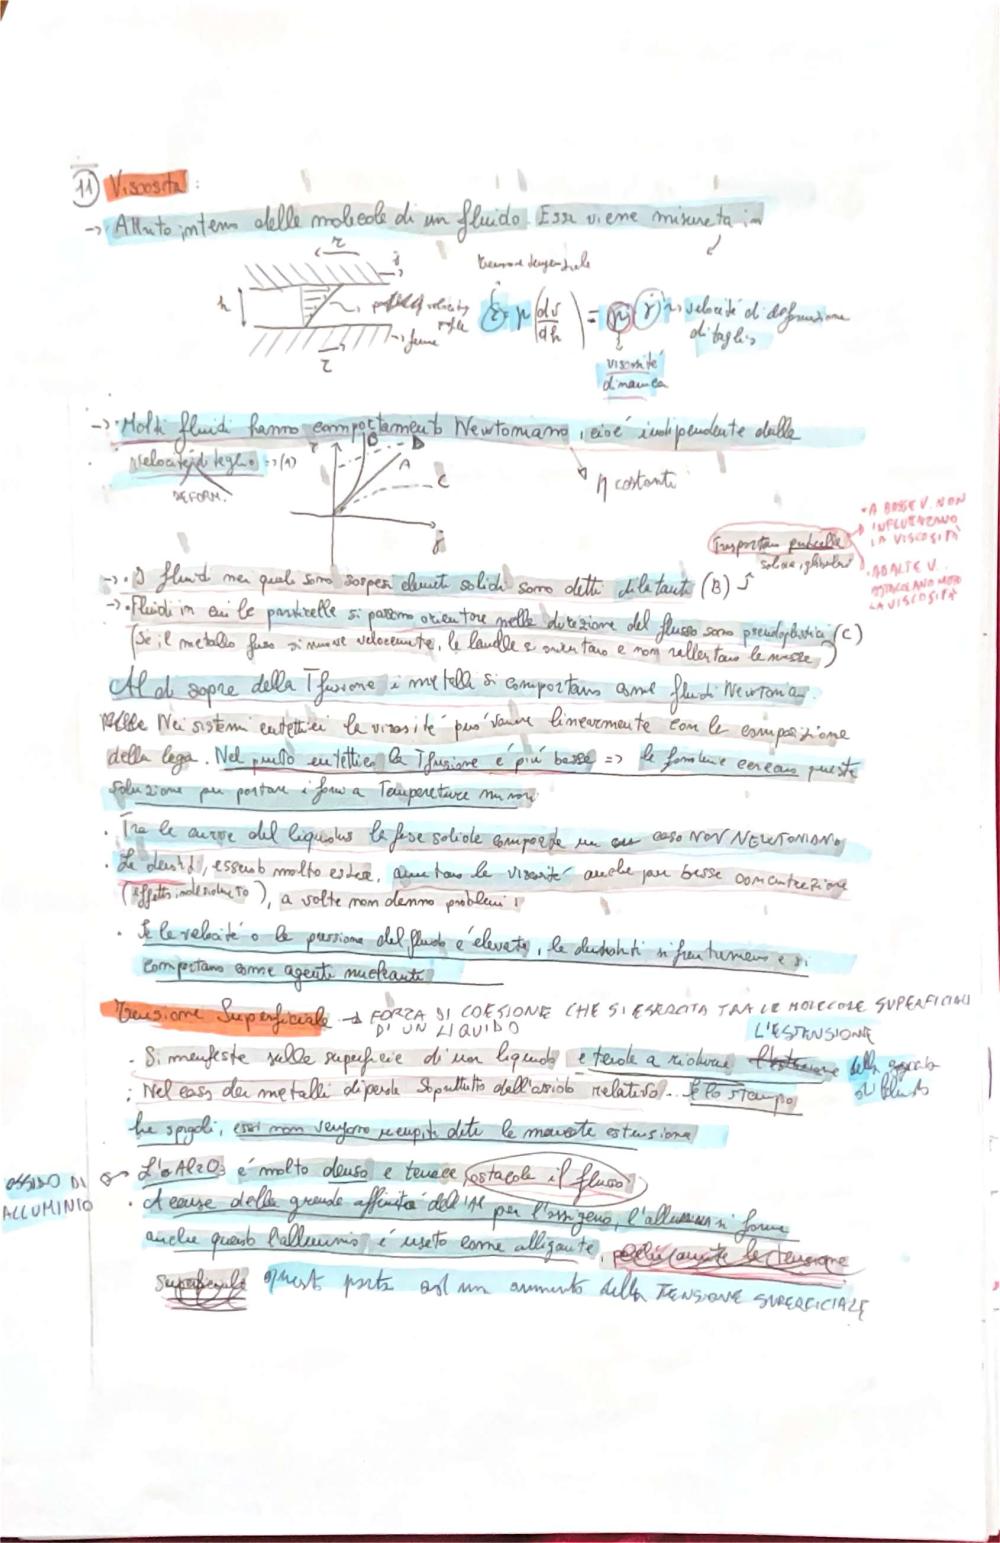 11 Viscosità :
-> Attrito interno delle molecole di un fluido. Essa viene misurata in
tensione tangenziale
h
τ = η (dv/dh) = η γ̇ -> velocità di deformazione
di taglio
viscosità
dinamica
τ
-> Molti fluidi hanno comportamento Newtoniano, cioè indipendente dalla
velocità di taglio => (A)
DEFORM.
η costanti
τ B D
A
C
γ̇
• A BASSE V. NON
INFLUENZANO
LA VISCOSITÀ
Trasportano particelle
solide,
• AD ALTE V.
OSTACOLANO MOLTO
LA VISCOSITÀ
-> • I fluidi nei quali sono sospesi elementi solidi sono detti dilatanti (B)
-> • Fluidi in cui le particelle si possono orientare nella direzione del flusso sono pseudoplastici (C)
(Se il metallo fuso si muove velocemente, le si orientano e non rallentano le masse)
Al di sopra della T fusione i metalli si comportano come fluidi Newtoniani.
Nei sistemi eutettici la viscosità può variare linearmente con la composizione
della lega. Nel punto eutettico la T fusione è più bassa => le fonderie cercano queste
soluzione per portare i forni a Temperature minori
• Tra le curve del liquidus la fase solida comporta un caso NON NEWTONIANO
• Le dendriti, essendo molto estese, aumentano la viscosità anche per basse concentrazione
(effetto indesiderato), a volte non danno problemi
• Se la velocità o la pressione del fluido è elevata, le dendriti si frantumano e si
comportano come agenti nucleanti
Tensione Superficiale -> FORZA DI COESIONE CHE SI ESERCITA TRA LE MOLECOLE SUPERFICIALI
DI UN LIQUIDO
L'ESTENSIONE
- Si manifesta sulla superficie di un liquido e tende a ridurne l'estensione della
di fluido
• Nel caso dei metalli dipende soprattutto dall'ossido relativo. Se lo stampo
ha spigoli, essi non vengono riempiti data la mancata estensione
OSSIDO DI
ALLUMINIO
L'Al2O3 è molto denso e tenace, ostacola il flusso
• A causa della grande affinità dell'Al per l'ossigeno, l'allumina si forma
anche quando l'alluminio è usato come alligante,
superficiale questo porta ad un aumento della TENSIONE SUPERFICIALE